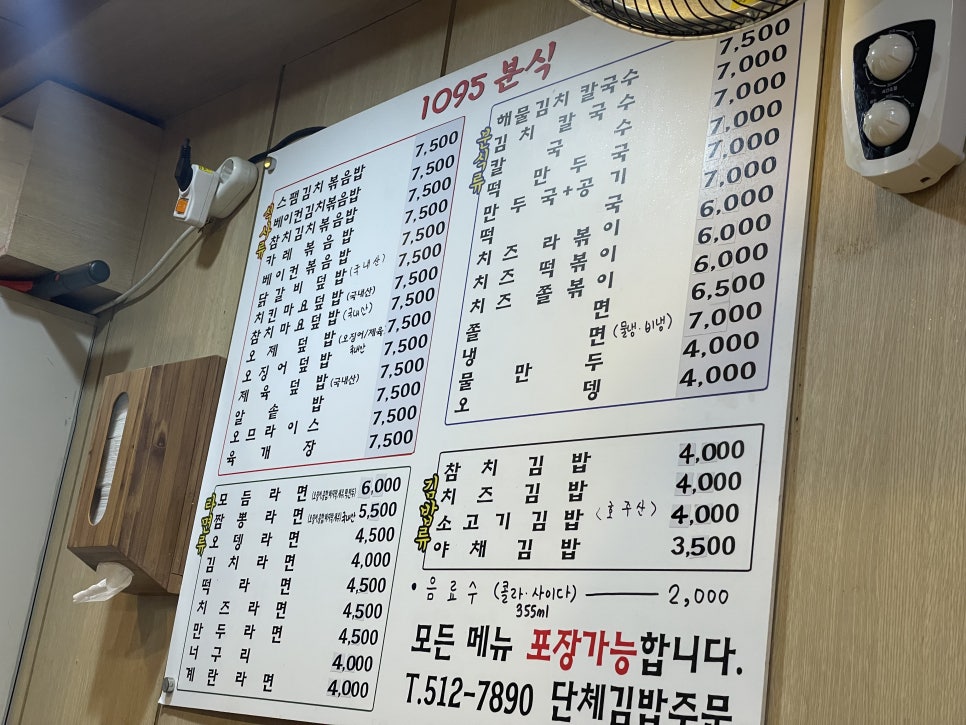 1095 분식
식사류
스팸김치볶음밥 7,500
베이컨김치볶음밥 7,500
참치김치볶음밥 7,500
카레볶음밥 7,500
베이컨볶음밥 7,500
닭갈비덮밥 (국내산) 7,500
치킨마요덮밥 (국내산) 7,500
참치마요덮밥 (국내산) 7,500
오제덮밥 (오징어/제육 국내산) 7,500
오징어덮밥 7,500
제육덮밥 (국내산) 7,500
알솥밥 7,500
오므라이스 7,500
육개장 7,500
분식류
해물김치칼국수 7,500
김치칼국수 7,000
칼국수 7,000
떡만두국 7,000
만두국+공기 7,000
떡국 7,000
치즈라볶이 6,000
치즈떡볶이 6,000
치즈쫄볶이 6,000
쫄면 6,500
냉면 (물냉·비냉) 7,000
물만두 4,000
오뎅 4,000
라면류
모듬라면 6,000
짬뽕라면 5,500
오뎅라면 4,500
김치라면 4,000
떡라면 4,500
치즈라면 4,500
만두라면 4,500
너구리 4,000
계란라면 4,000
김밥류
참치김밥 4,000
치즈김밥 4,000
소고기김밥 (호주산) 4,000
야채김밥 3,500
• 음료수 (콜라·사이다) 2,000
355ml
모든 메뉴 포장가능합니다.
T.512-7890 단체김밥주문